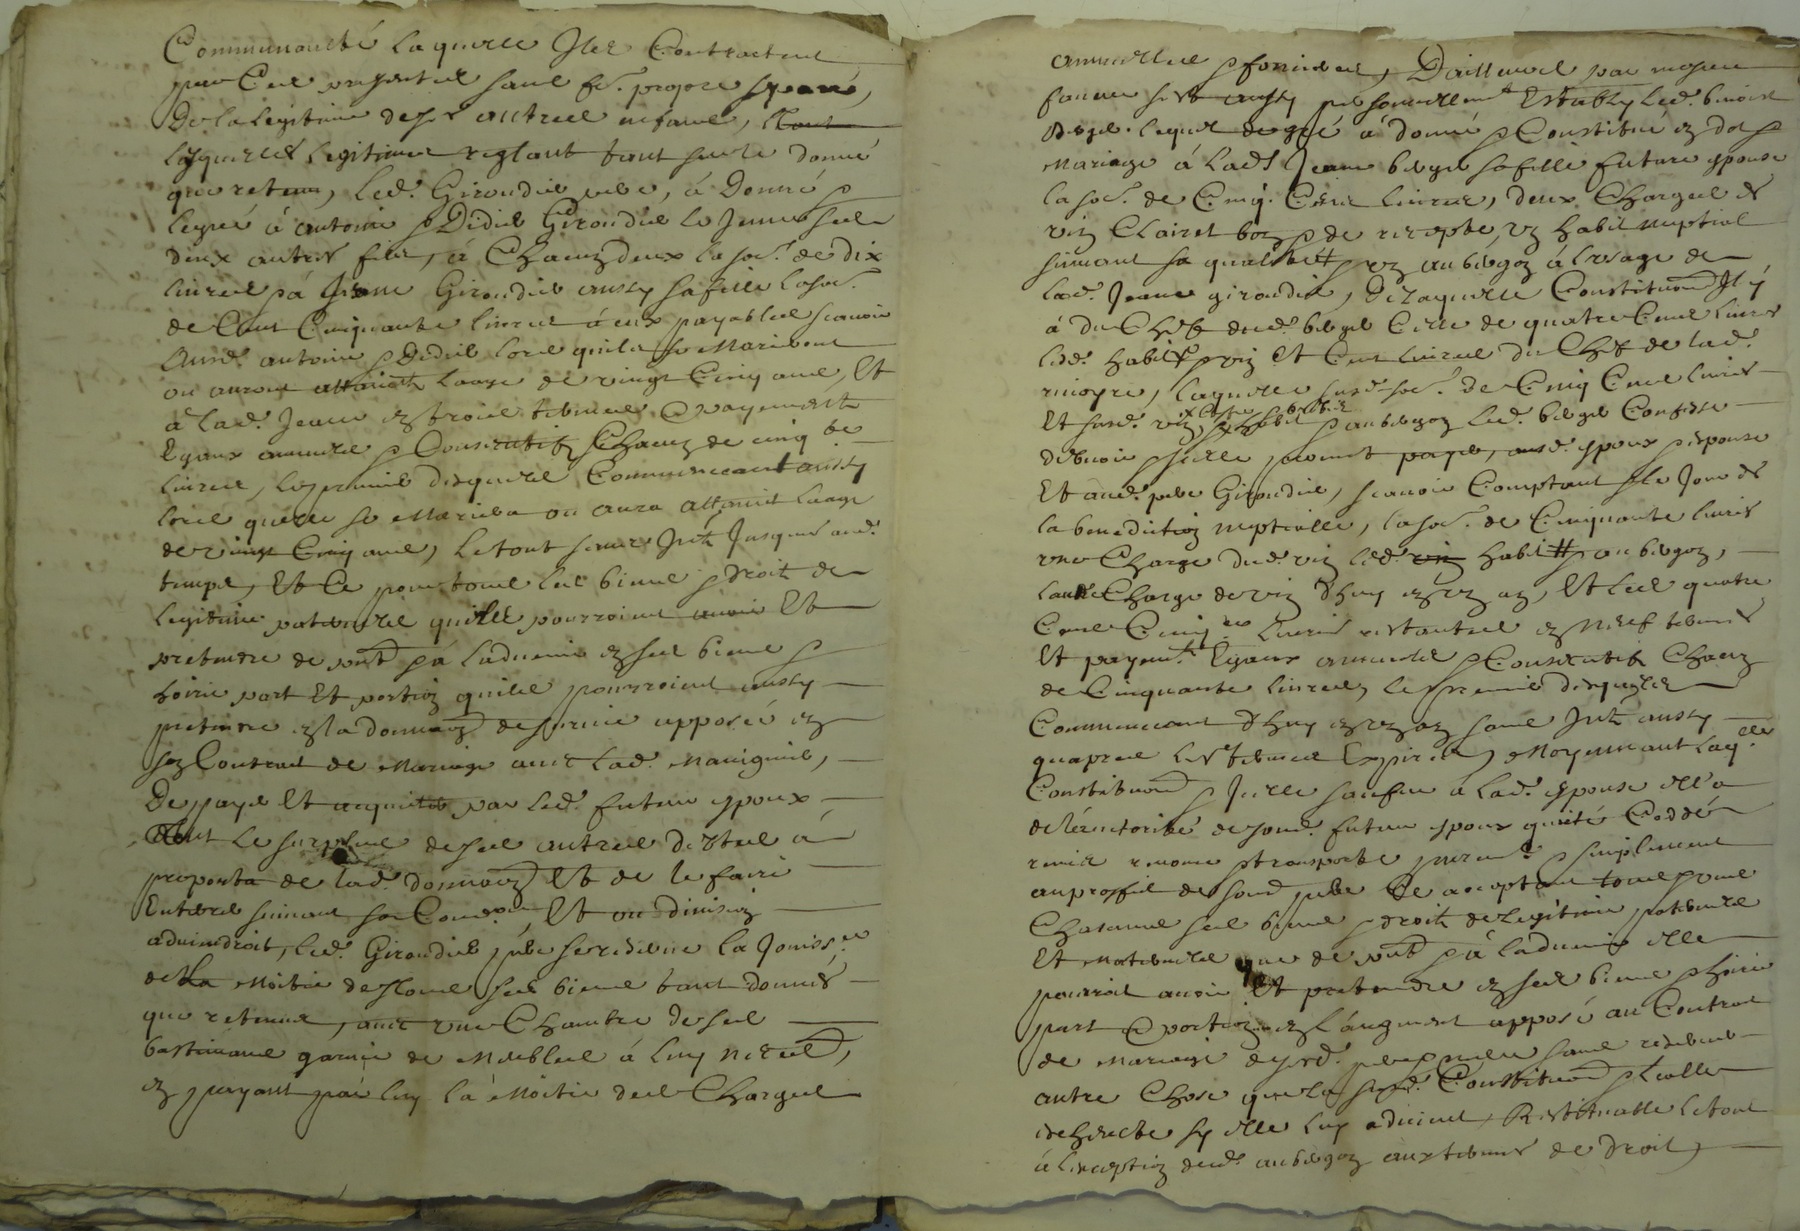 Communauté laquelle Ils Contractent
par Ces presentes sans fe. propre
De la legitime de ses autres enfans,
lesquelles legitimes reglant tant sur le donné
que retenu, led. Giroudier pere, à Donné &
legué à antoine & Didier Giroudier le Jeune ses
deux autres fils, à Chacun deux la so.e de dix
livres & à Jeane Giroudier aussy sa fille la so.e
de Cent Cinquante livres à eux payables scavoir
Ausd. antoine & Didier lors quils se Marieront
ou auront attainct laage de vingt Cinq ans, Et
à lad. Jeane en trois termes & payements
Egaux annuels & Consecutifs Chacun de cinq.te
livres, le premier desquels Commenceant aussy
lors quelle se Mariera ou aura attainct laage
de vingt Cinq ans, le tout sans Int.t Jusques aud.
temps, Et Ce pour tous les biens & droits de
legitime paternelle quils pourroient avoir Et
pretendre de pnt & à ladvenir en ses biens &
hoirie part Et portion quils pourroient aussy
pretendre en la donnaon de survie apposée en
son Contract de Mariage avec lad. Mavignier,
De payer Et acquiter par led. futur epoux
tout le surplus de ses autres dettes à
proporta de lad. donnaon Et de le faire
Enterrer suivant sa Con.on Et ou division
adviendroit, led. Giroudier pere se reserve la Jouiss.ce
de la Moitie de tous ses biens tant donnés
que retenus, avec une Chambre de ses
bastimans garnie de Meubles à luy necess.,
en payant par luy la Moitie des Charges
annuelles & foncieres, D'ailleurs par mesme
faveur s'est aussy personnellem.t Estably led. benoist
berger lequel de gré à donné & Constitué en dot &
Mariage à lad. Jeane berger sa fille future epouse
la so.e de Cinq Cens livres, deux Charges de
vin Clairet bon & de recepte, un habit nuptial
suivant sa qualité & un aubergon à l'usage de
lad. Jeane giroudier, De laquelle Constitution Il y
à du Chef dud. berger Celle de quatre Cens livres
led. habit & vin Et Cent livres du Chef de lad.
laquelle susd. so.e de Cinq Cens livres
Et susd. vin, habit & aubergon led. berger Confesse
debvoir & Icelle promet payer, ausd. epoux & epouse
Et aud. pere Giroudier, scavoir Comptant & le Jour de
la benediction nuptialle, la so.e de Cinquante livres
une Charge dud. vin led. habit & aubergon,
lautre Charge de vin d'huy en un an, Et les quatre
Cens Cinq.te livres restantes en Neuf termes
Et payem.ts Egaux annuels & Consecutifs Chacun
de Cinquante livres, le premier desquels
Commenceant d'huy en un an sans Int.t aussy
quapres les termes Expirés, Moyennant laq.lle
Constitution & Icelle sauve a lad. epouse elle a
de lérauctorité de sond. futur epoux quitté Ceddé
remis renoncé & transporté purem.t & simplement
au proffit de sond. pere Ce acceptant tous & uns
Chascuns ses biens & droits de legitime paternelle
Et Maternelle que de pnt & à ladvenir elle
pourroit avoir Et pretendre en ses biens & hoirie
part & portion en l'augment apposé au Contract
de Mariage de sesd. pere & mere sans reserver
autre Chose que la susd. Constitution & Loialle
echeutte sy elle luy advient, Restituable le tout
à l'exception dud. aubergon aux termes de droit,